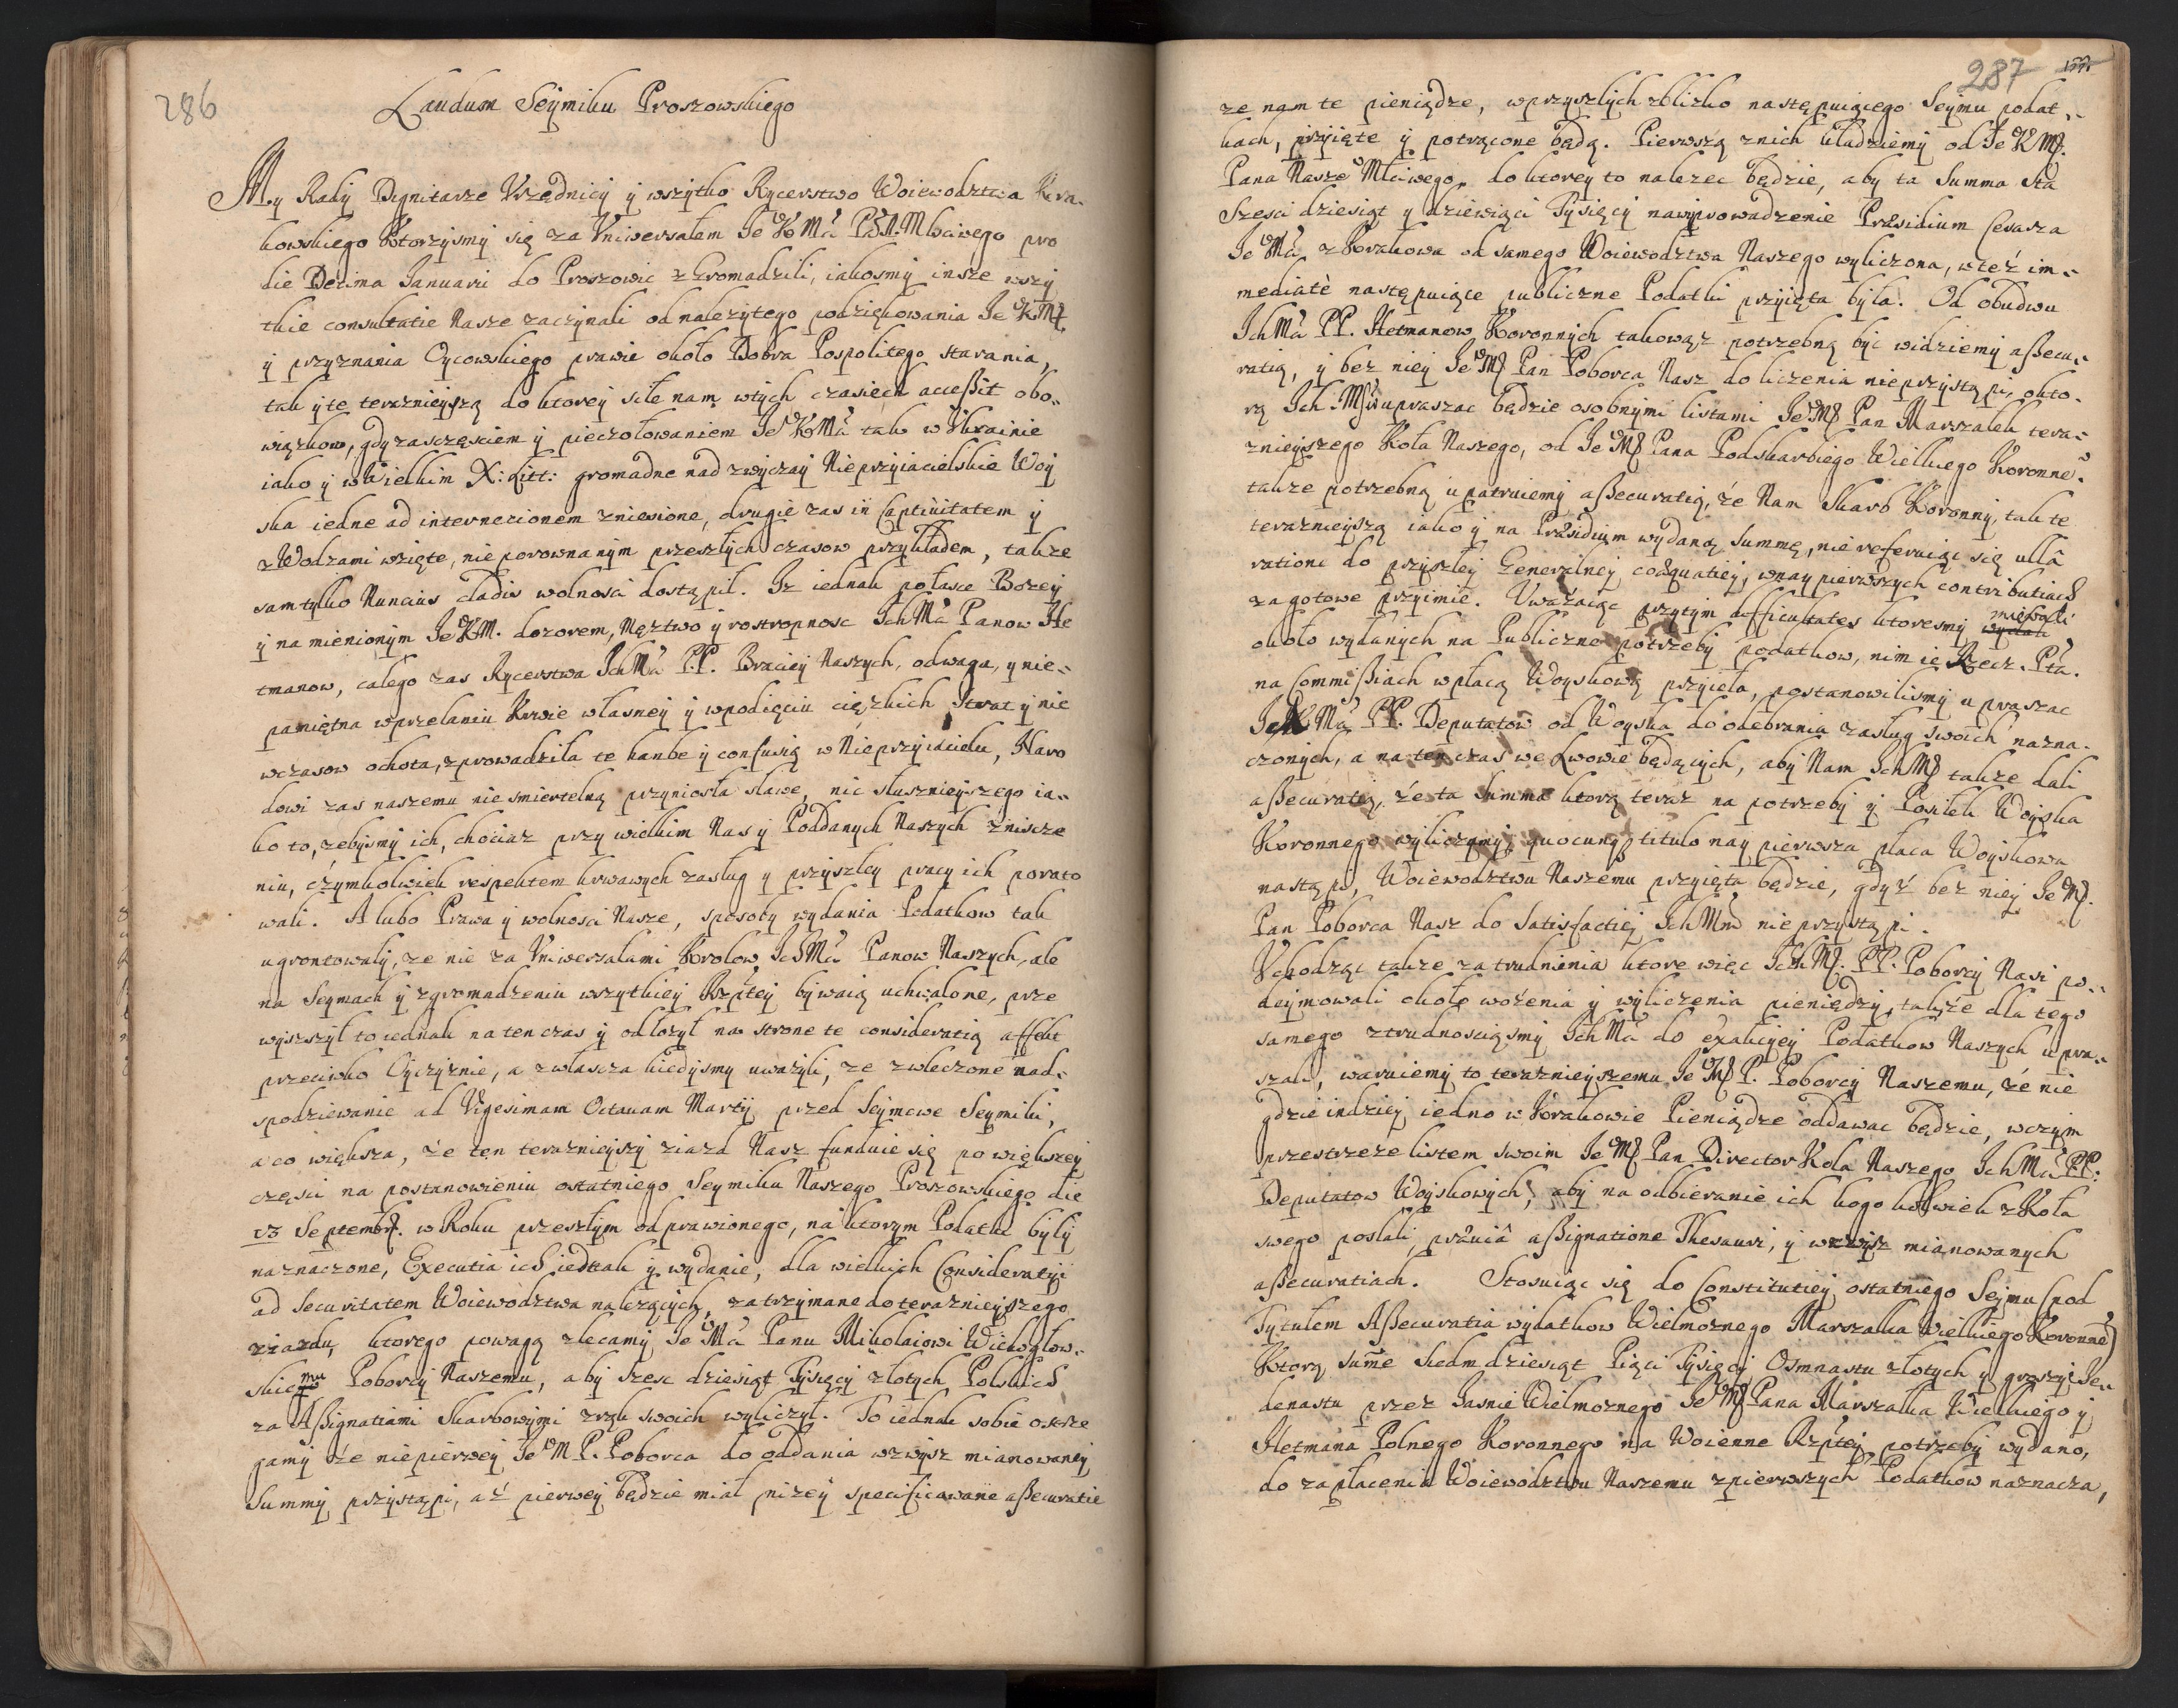 286
Laudum Seÿmiku Proszowskiego
My Radÿ Dignitarze Vrzędnicÿ ÿ wszÿtko Rÿcerstwo Woiewodztwa Kra-
kowskiego Ktorzÿsmÿ się za Vniwersałem Je° K Mci P. N. Młsciwego pro
die Decima Januarii do Proszowic zgromadzili, iakosmÿ insze wszÿ
tkie consultatie Nasze zaczÿnali od nalezÿtego podziękowania Je° K Mci
ÿ przÿznania Oÿcowskiego prawie około Dobra Pospolitego starania,
tak ÿ te terazniejszą do ktoreÿ siłe nam wtÿch czasiech acceßit obo-
wiązkow, gdÿ za sczęsciem ÿ pieczołowaniem Je° K Mci tak w Ukrainie
iako ÿ w Wielkim X: Litt: gromadne nad zwÿczaÿ Nieprzÿiacielskie Woÿ
ska iedne ad internecionem zniesione, drugie zas in Captiuitatem ÿ
z Wodzami wzięte, nieporownanÿm przeszłÿch czasow przÿkładem, takze
sam tÿlko Nuncius cladis wolnosci dostąpił. Iz iednak po łasce Bozeÿ
ÿ na mienionÿm Je° K M. dozorem, Męztwo ÿ rostropnosc Ich Mci Panow He
tmanow, całego zas Rÿcerstwa Ich Mci P.P. Braciey Naszÿch, odwaga, y nie-
pamiętna wprzelaniu Krwie własneÿ ÿ wpodięciu cięzkich strat ÿ nie
wczasow ochota, zprowadziła te hanbe ÿ confusią w Nieprzÿiacielu, Naro
dowi zas naszemu niesmiertelną przÿniosła sławe, nic słusznieÿszego ia-
ko to, zebÿsmÿ ich, chociaz przÿ wielkim Nas ÿ Poddanÿch Naszÿch znisze
niu, czÿmkolwiek respektem krwawÿch zasług ÿ przÿszłeÿ pracÿ ich porato
wali. A lubo Prawa ÿ wolnosci Nasze, sposobÿ wÿdania Podatkow tak
ugrontowałÿ, ze nie za Vniwersałami Krolow Ich Mci Panow Naszÿch, ale
na Seÿmach ÿ zgromadzeniu wszÿtkieÿ Rzptej bÿwaią uchwalone, prze
wÿzszÿł to iednak na ten czas ÿ odłozÿł na strone te consideratią affekt
przeciwko Oÿczÿznie, a zwłascza kiedÿsmÿ uwazÿli, ze zwleczone nad-
spodziewanie ad Vigesimam Octauam Martÿ przed Seÿmowe Seÿmiki,
a co większa, że ten teraznieÿszÿ ziazd Nasz funduie się po większeÿ
części na postanowieniu ostatniego Seÿmiku Naszego Proszowskiego die
13 Septembr. w Roku przeszłÿm odprawionego, na ktorÿm Podatki bÿłÿ
naznaczone, Executia ich iednak ÿ wÿdanie, dla wielkich Consideratÿi
ad Securitatem Woiewodztwa nalezącÿch, zatrzÿmane do teraznieÿszego
ziazdu, ktorego powagą zlecamÿ Je° Mci Panu Mikołaiowi Wielogłow-
skiemu Poborcÿ Naszemu, abÿ szesc dziesiąt Tÿsięcÿ złotÿch Polskich
za Aßignatiami Skarbowÿmi zrąk swoich wÿliczÿł. To iednak sobie ostrze
gamÿ że niepierweÿ Je° M P. Poborca do oddania wzwÿsz mianowaneÿ
Summÿ przÿstąpi, aż pierweÿ będzie miał nizeÿ specificowane aßecuratie
287
ze nam te pieniądze, wprzÿszłÿch zblizko następuiącego Seÿmu podat-
kach, przÿięte ÿ potrącone będą. Pierwszą znich kładziemÿ od Je° K Mci.
Pana Nasze° Mściwego, do ktoreÿ to nalezec będzie, abÿ ta Summa Sta
Szesci dziesiąt ÿ dziewiąci Tÿsięcÿ na wÿprowadzenie Præsidium Cesarza
Je° Mci z Krakowa od samego Woiewodztwa Naszego wÿliczona, w też im-
mediatè następuiące publiczne Podatki przÿięta bÿła. Od obudwu
Ich Mci PP. Hetmanow Koronnÿch takowąz potrzebną bÿc widziemÿ aßecu-
ratią, ÿ bez nieÿ Je° M Pan Poborca Nasz do liczenia nieprzÿstąpi, o kto-
rą Ich Mciow upraszac będzie osobnÿmi listami Je° M Pan Marszałek tera-
znieÿszego Koła Naszego, od Je° M Pana Podskarbiego Wielkiego Koronne°
takze potrzebną upatruiemÿ aßecuratią, że Nam Skarb Koronnÿ, tak te
teraznieÿszą iako ÿ na Præsidium wÿdaną Summę, nie referuiąc się ullâ
ratione do przÿszłeÿ Generalneÿ coæquatieÿ, wnaÿpierwszÿch contributiach
za gotowe przÿimie. Uważaiąc przÿtÿm difficultates ktoresmÿ miewali
około wÿdanÿch na Publiczne potrzebÿ podatkow, nim ie Rzecz. Pta.
na Commißiach wpłacą Woÿskową przÿięła, postanowilismÿ upraszac
Ich Mci PP. Deputatow od Woÿska do odebrania zasług swoich nazna-
czonÿch, a na ten czas we Lwowie będącÿch, abÿ Nam Ich Mci takze dali
aßecuratią, że ta Summa ktorą teraz na potrzebÿ ÿ Posiłek Woÿska
Koronnego wÿliczÿmÿ, quocunque titulo naÿ pierwsza płaca Woÿskowa
nastąpi, Woiewodztwu Naszemu przÿięta będzie, gdÿż bez nieÿ Je° M.
Pan Poborca Nasz do Satisfactieÿ Ich Mciow nie przÿstąpi.
Vchodząc takze zatrudnienia ktore więc Ich M. PP. Poborcÿ Nasi po-
deÿmowali około wożenia ÿ wÿliczenia pieniędzÿ, także dla tego
samego ztrudnosciąsmÿ Ich Mci do exakcÿeÿ Podatkow Naszÿch upra-
szali, waruiemÿ to teraznieÿszemu Je° M P. Poborcÿ Naszemu, że nie
gdzie indzieÿ iedno w Krakowie Pieniądze oddawac będzie, wczÿm
przestrzeze listem swoim Je° M Pan Director Koła Naszego Ich Mci PP.
Deputatow Woÿskowÿch, abÿ na odbieranie ich kogokolwiek z Koła
swego posłali, præuiâ aßignatione Thesauri, ÿ wzwÿsz mianowanÿch
aßecuratiach. Stosuiąc się do Constitutieÿ ostatniego Seÿmu (pod
Tÿtułem Aßecuratia wÿdatkow Wielmoznego Marszałka Wielkiego Koronne°)
Ktorą sume siedmdziesiąt Pięci Tÿsięcÿ Osmnastu złotÿch ÿ groszÿ Jeden
denastu przez Jasnie Wielmoznego Je° M Pana Marszałka Wielkiego ÿ
Hetmana Polnego Koronnego na Woienne Rzptej potrzebÿ wÿdano,
do zapłacenia Woiewodztwu Naszemu zpierwszÿch Podatkow naznacza,